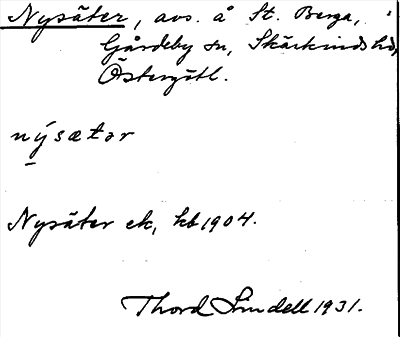 Nysäter, avs. å St. Berga,
Gårdeby sn, Skärkinds hd,
Östergötl.
nýsætər
Nysäter ek, kb 1904.
Thord Lindell 1931.